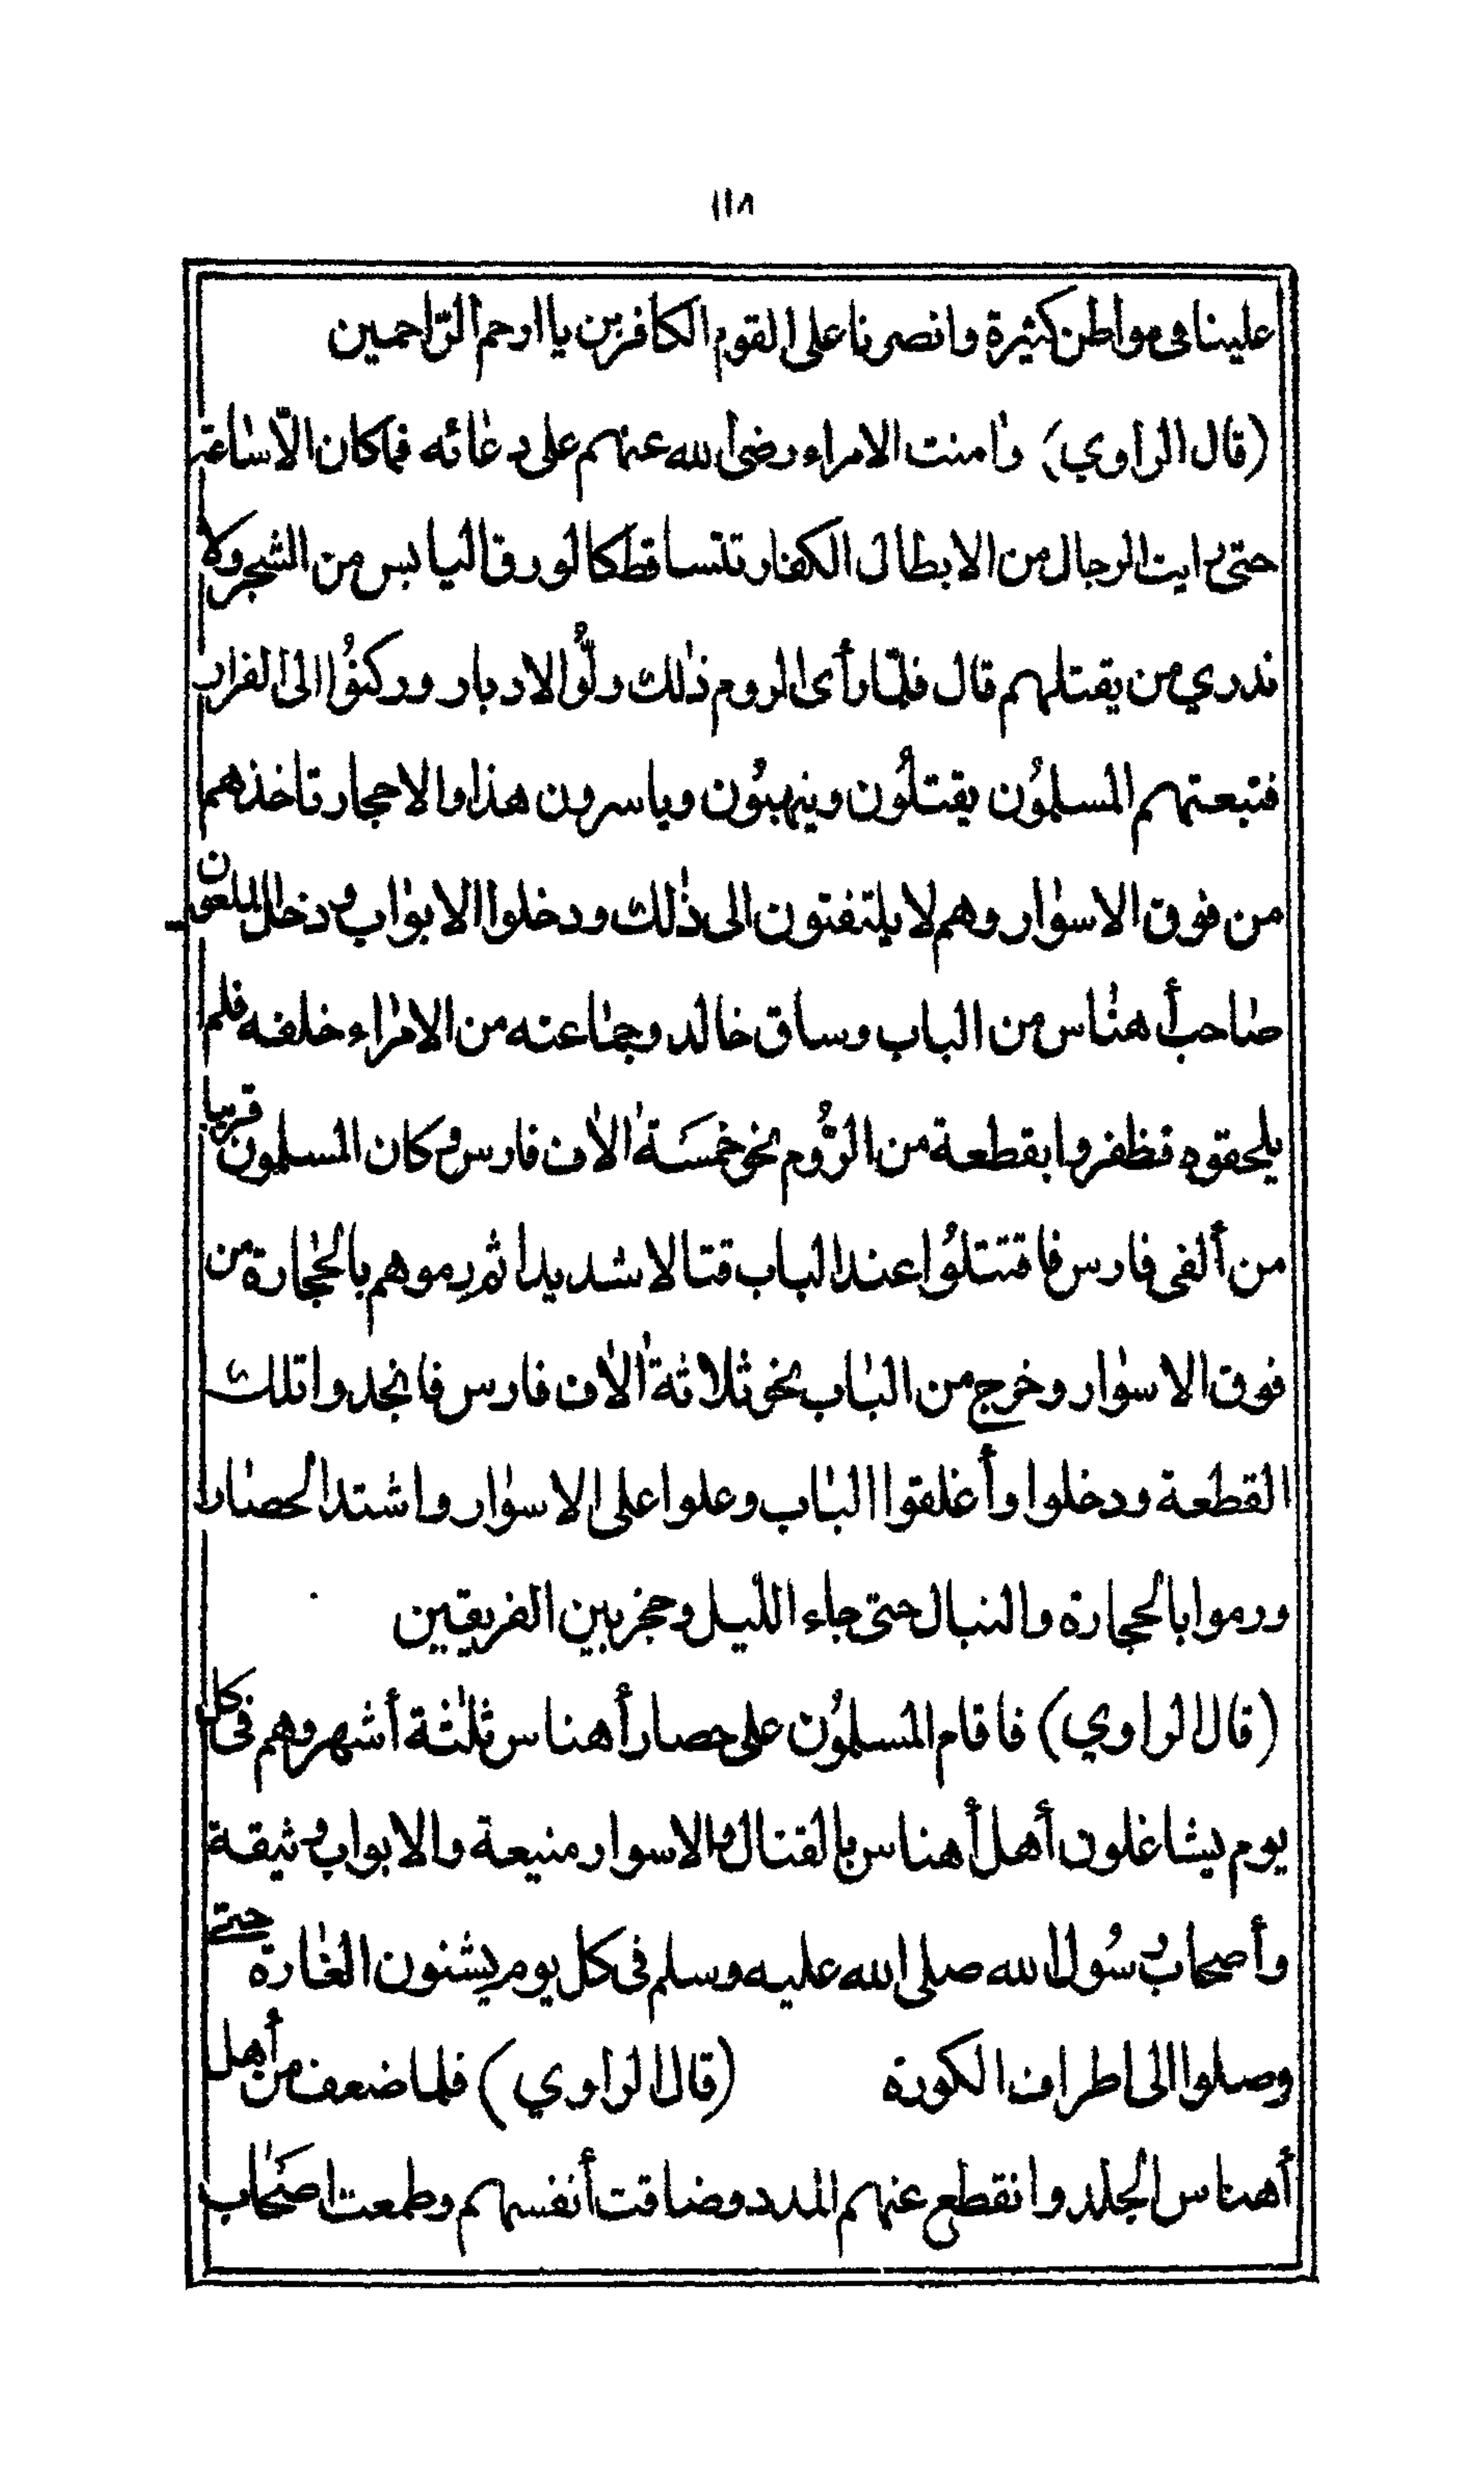 ١١٨
علينا فى مواطن كثيرة وانصرنا على القوم الكافرين يا ارحم الرّاحمين
(قال الراوي) وامنت الامراء رضى الله عنهم على دعائه فما كان الّا ساعة
حتى رايت الرجال من الابطال الكفار تتساقط كالورق اليابس من الشجر ولا
ندري من يقتلهم قال فلمّا رأى الروم ذلك ولُّوا الادبار وركنُوا الى الفرار
فتبعتهم المسلمُون يقتلُون وينهبُون وياسرون هذا والاحجار تاخذهم
من فوق الاسوار وهم لا يلتفتون الى ذلك ودخلوا الابواب ودخل الملعون
صاحب أهناس من الباب وساق خالد وجماعته من الامراء خلفه فلم
يلحقوه فظفروا بقطعة من الرُّوم نحو خمسَة الاف فارس وكان المسلمون قريبا
من ألفى فارس فاقتتلُوا عند الباب قتالا شديدا ثم رموهم بالحجارة من
فوق الاسوار وخرج من الباب نحو ثلاثة الاف فارس فانجدوا تلك
القطعة ودخلوا وأغلقوا الباب وعلوا على الاسوار واشتد الحصار
ورموا بالحجارة والنبال حتى جاء اللّيل وحجز بين الفريقين
(قال الراوي) فاقام المسلمُون على حصار أهناس ثلثة أشهر وهم فى كل
يوم يشاغلون أهل أهناس بالقتال والاسوار منيعة والابواب وثيقة
وأصحاب رسُول الله صلى الله عليه وسلم فى كل يوم يشنون الغارة حتى
وصلوا الى اطراف الكورة (قال الراوي) فلما ضعف من أهل
أهناس الجلد وانقطع عنهم المدد وضاقت أنفسهم وطمعت اصحَاب